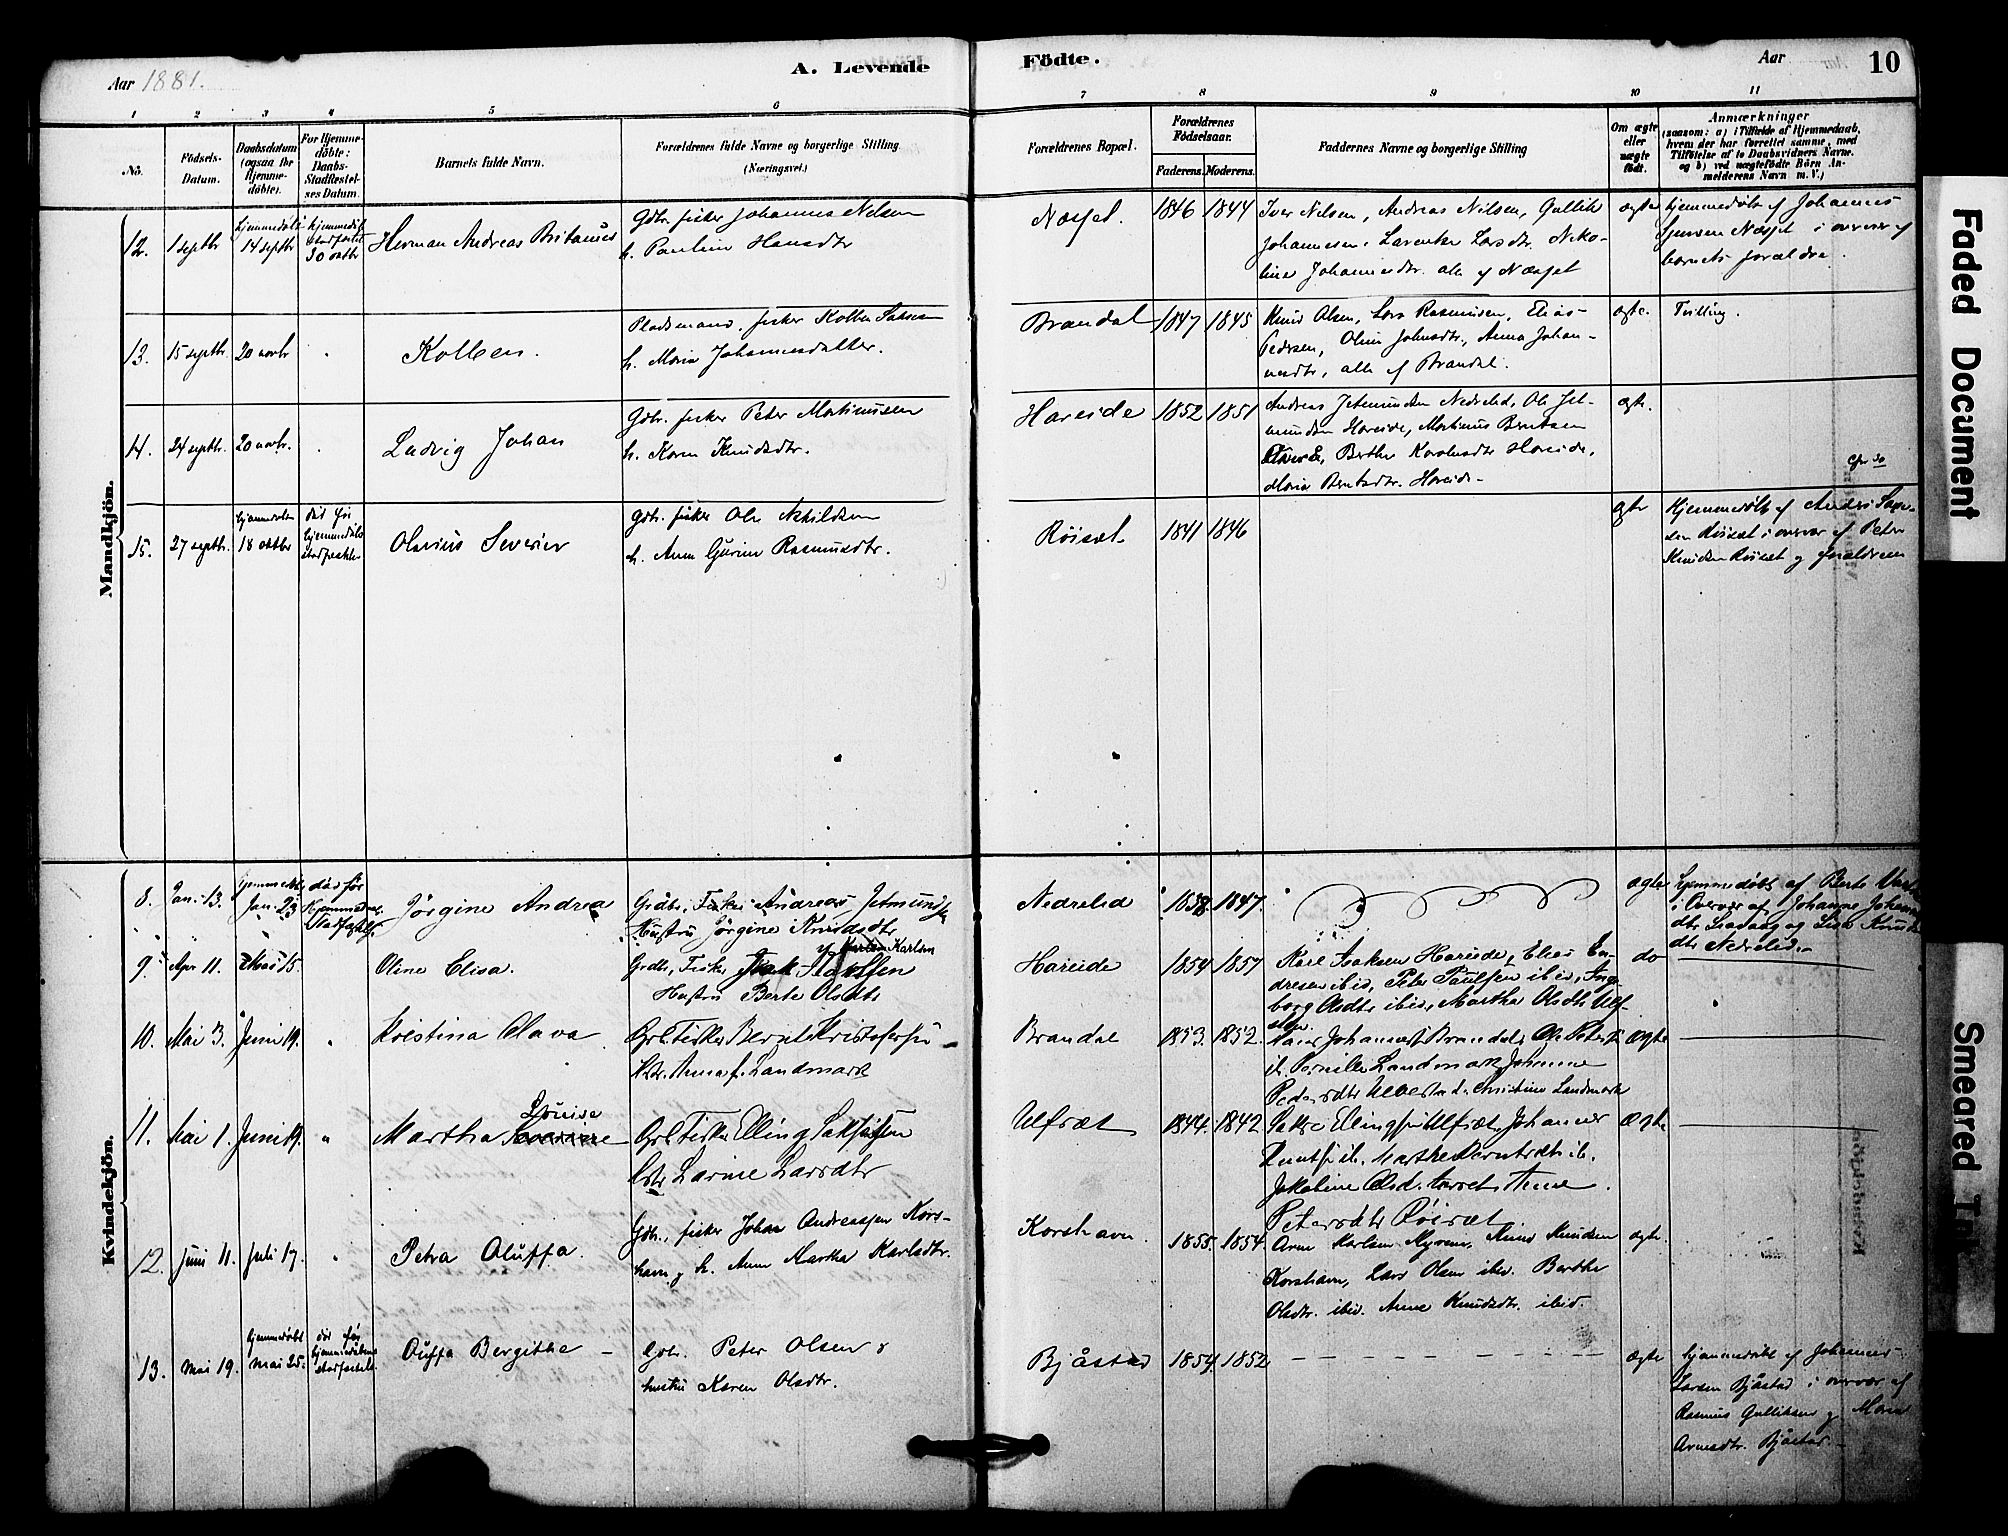 Aar 1881.
A. Levende
Födte.
Aar
10
1
2
3
4
5
6
7
8
9
10
11
No.
Födsels-
Datum.
Daabsdatum
(ogsaa for
Hjemme-
döbte).
For Hjemme-
döbte:
Daabs-
Stadfæstel-
ses Datum
Barnets fulde Navn.
Forældrenes fulde Navne og borgerlige Stilling
(Næringsvei.)
Forældrenes Bopæl.
Forældrenes
Fødselsaar.
Faderens.
Moderens.
Faddernes Navne og borgerlige Stilling
Om ægte
eller
uægte
født.
Anmærkninger
(saasom: a) i Tilfælde af Hjemmedaab,
hvem der har forrettet samme, med
Tilföielse af to Daabsvidners Navne.
og b) ved uægtefödte Börn An-
melderens Navn m. V.)
Mandkjön.
12.
1 septbr
hjemmedøbt
14 septbr
30 oktbr
Herman Andreas Britanus
Gdbr. fisker Johannes Nilsen
h. Pauline Hansdtr
Næsset.
1846
1844
Iver Nilsen, Andreas Nilsen, Gullik
Johannesen, Larentse Larsdtr. Niko-
line Johannesdtr. alle af Næsset
ægte
hjemmedøbt af Johannes
Jensen Næsset i overvær af
barnets forældre.
13.
15 septbr
20 novbr
Kolben.
Pladsmand, fisker Kolben
h. Maria Johannesdatter.
Brandal
1847
1845
Knud Olsen, Lars Rasmussen, Elias
Pedersen, Oline Johnsdtr, Anna Johan-
nesdtr, alle af Brandal.
ægte.
Tvilling.
14.
24 septbr.
20 novbr.
Ludvig Johan
Gdbr. fisker Peter Martinussen
h. Karen Knudsdtr.
Hareide
1852
1851
Andreas Jetmundsen Nedrelid, Ole Jet-
mundsen Hareide, Martinus Berntsen
Berthe Karolusdtr Hareide,
Maria Berntsdtr. Hareide
ægte.
15.
27 septbr.
hjemmedøbt
18 oktbr
død før
hjemmedaab
stadfæstet
Olavius Severin
Gdbr. fisker Ole Askildsen
h. Anne Gurine Rasmusdtr.
Röiset
1841
1846
ægte
Hjemmedøbt af Anders
Röiset i overvær af Peter
Knudsen Röiset og forældrene
Kvindekjön.
8.
Jan. 13.
hjemmedøbt
Jan. 23
död før
Hjemmedaab
Stadfæstelse
Jörgine Andrea
Grdbr., Fisker Andreas Jetmundsen
Hustru Jörgine Knudsdtr
Nedrelid
1838
1847
ægte
hjemmedøbt af Berte
i Overvær af Johanne Johannes
dtr Liavaag og Lise Knuds
dtr Nedrelid.
9.
Apr 11.
Mai 15.
Oline Elisa.
Karlsen
Grdbr, Fisker Isak
Hustru Berte Olsdtr
Hareide
1854
1857
Karl Isaksen Hareide, Elias An-
dresen ibid, Peter Paulsen ibid, Inge-
borg Olsdtr ibid, Martha Olsdtr Ulf-
sten.
do
10.
Mai 3.
Juni 19.
"
Kristina Olava
Grbr. Fisker Bernt Kristofersen
Hstr. Anna f. Landmark
Brandal
1853.
1852.
Johannes Brandal, Ole Peters
ib. Pernille Landmark, Johanne
Pedersdtr Ulvestad. Christine Landmark
ægte
11.
Mai 1.
Juni 19.
"
Louise
Martha
Grbr. Fisker Elling Saksesen
Hstr Larine Larsdtr
Ulfset
1844.
1842
Sakse Ellingsen Ulfset, Johannes
Knutsen ib. Marthe Berntsdtr ib.
Jakobine Olsd. Anne
Petersdtr Röiset
ægte
12.
Juni 11.
Juli 17.
"
Petra Oluffa.
Gdbr., fisker Johan Andreassen Kors-
havn, h. Anne Martha Karlsdtr.
Korshavn
1855.
1854.
Arne Karlsen Myrene, Knud Knudsen
Korshavn, Lars Olsen ibid. Berthe
Olsdtr. ibid. Anne Knudsdtr. ibid.
ægte
13.
Mai 19.
hjemmedøbt
Mai 25.
død før
hjemmedaabens
stadfæstelse
Oluffa Bergithe
Gdbr. Peter Olsen &
hustru Karen Olsdtr.
Bjåstad
1854.
1852
ægte
hjemmedøbt af Johannes
Larsen Bjåstad i overvær af
Rasmus Gulliksen og Maria
Arnesdtr. Bjåstad.
Faded Document
Smeared